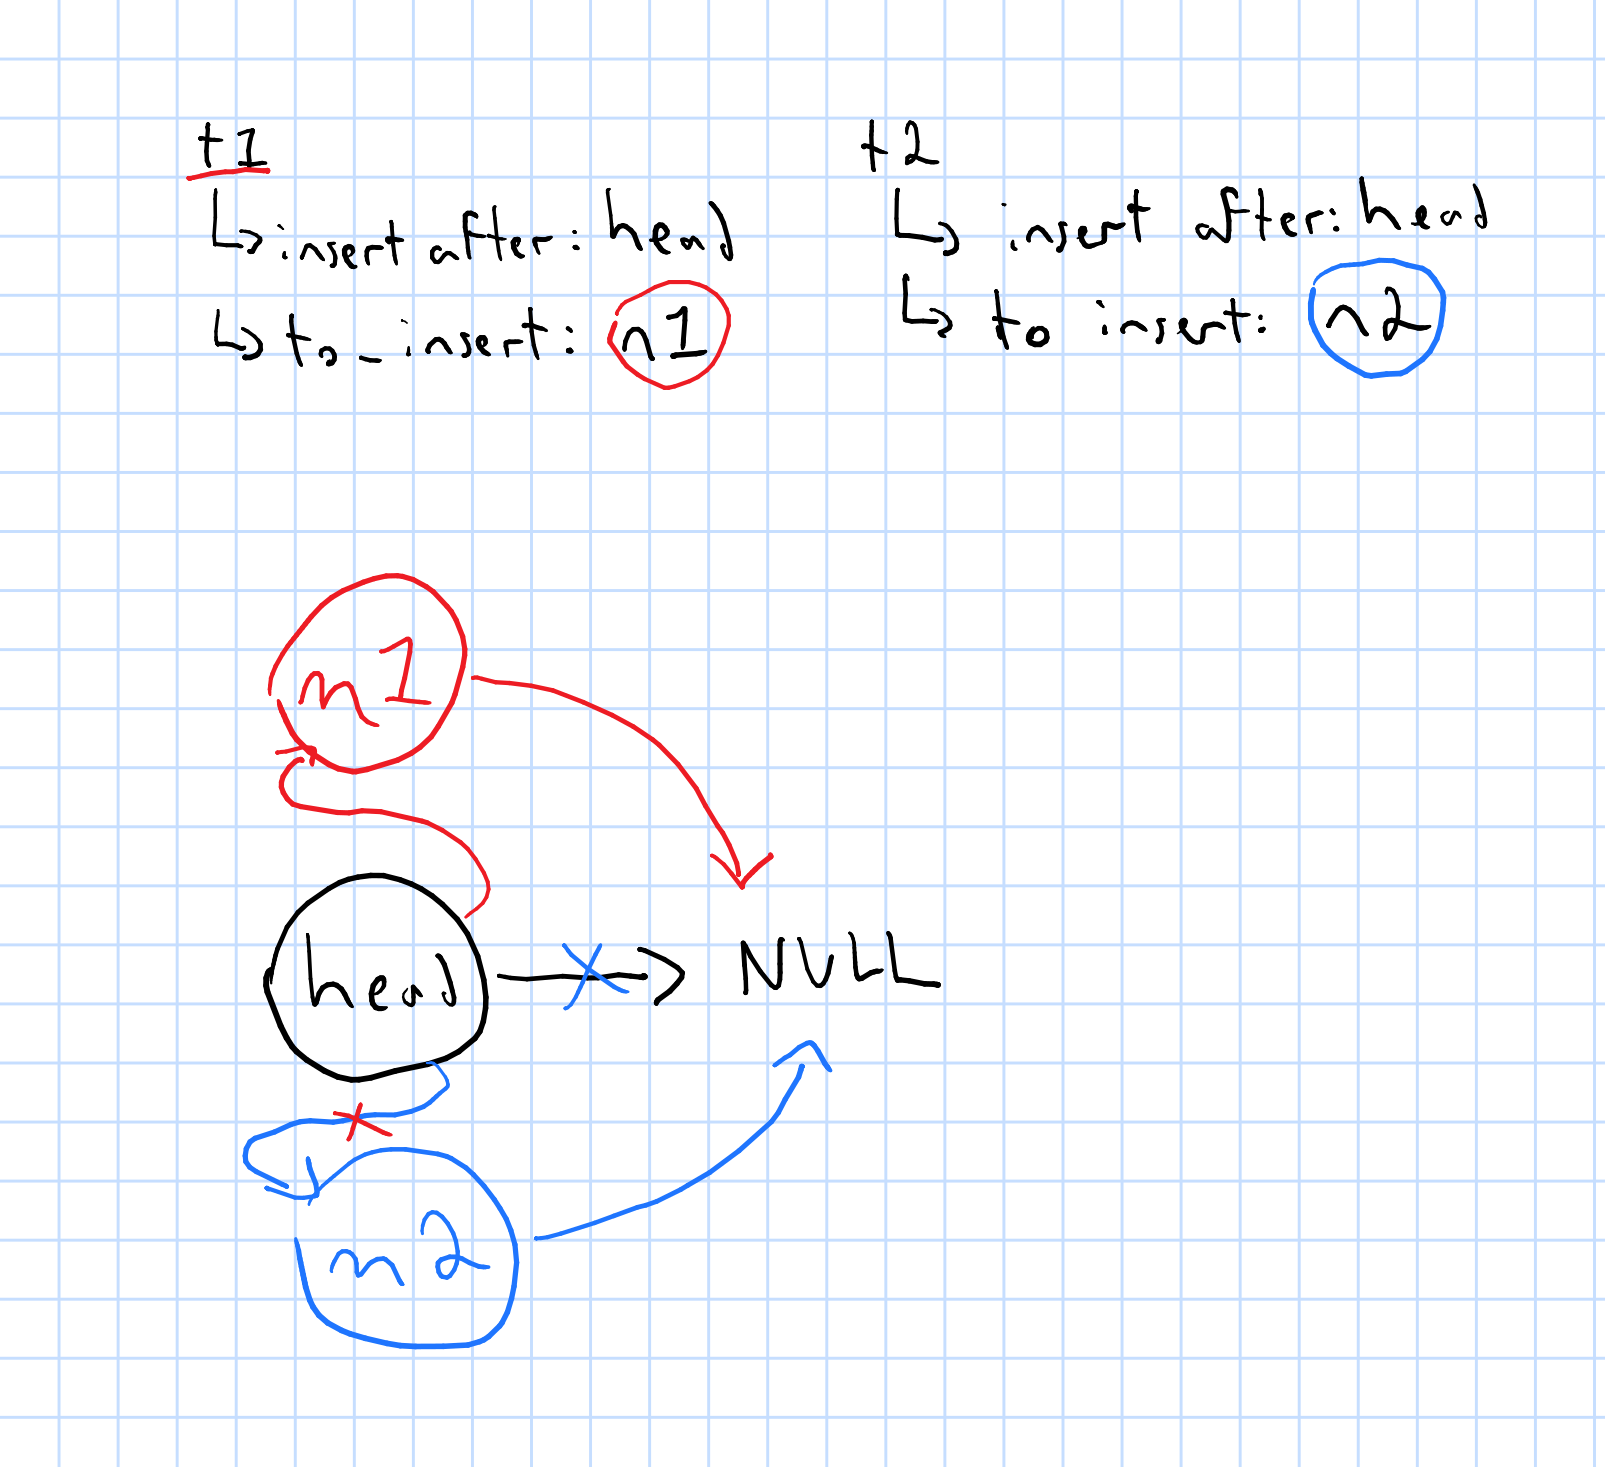 t1
insert after: head
to_insert: n1
t2
insert after: head
to insert: n2
n1
head
NULL
n2